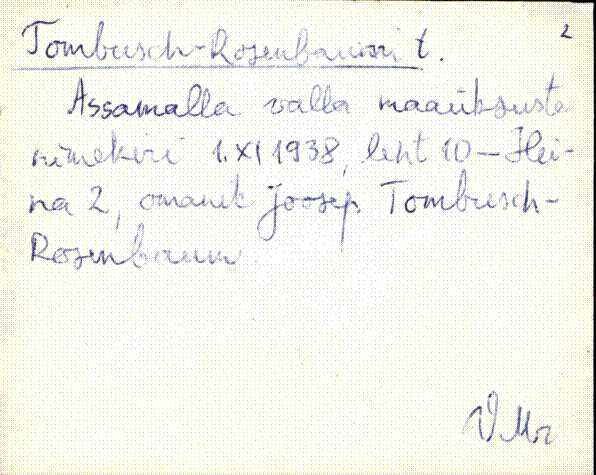 2
Tombusch-Rosenbaumi t.
Assamalla valla maaüksuste
nimekiri 1.XI 1938, leht 10 – Hei-
na 2, omanik Joosep Tombusch-
Rosenbaum.
VMr